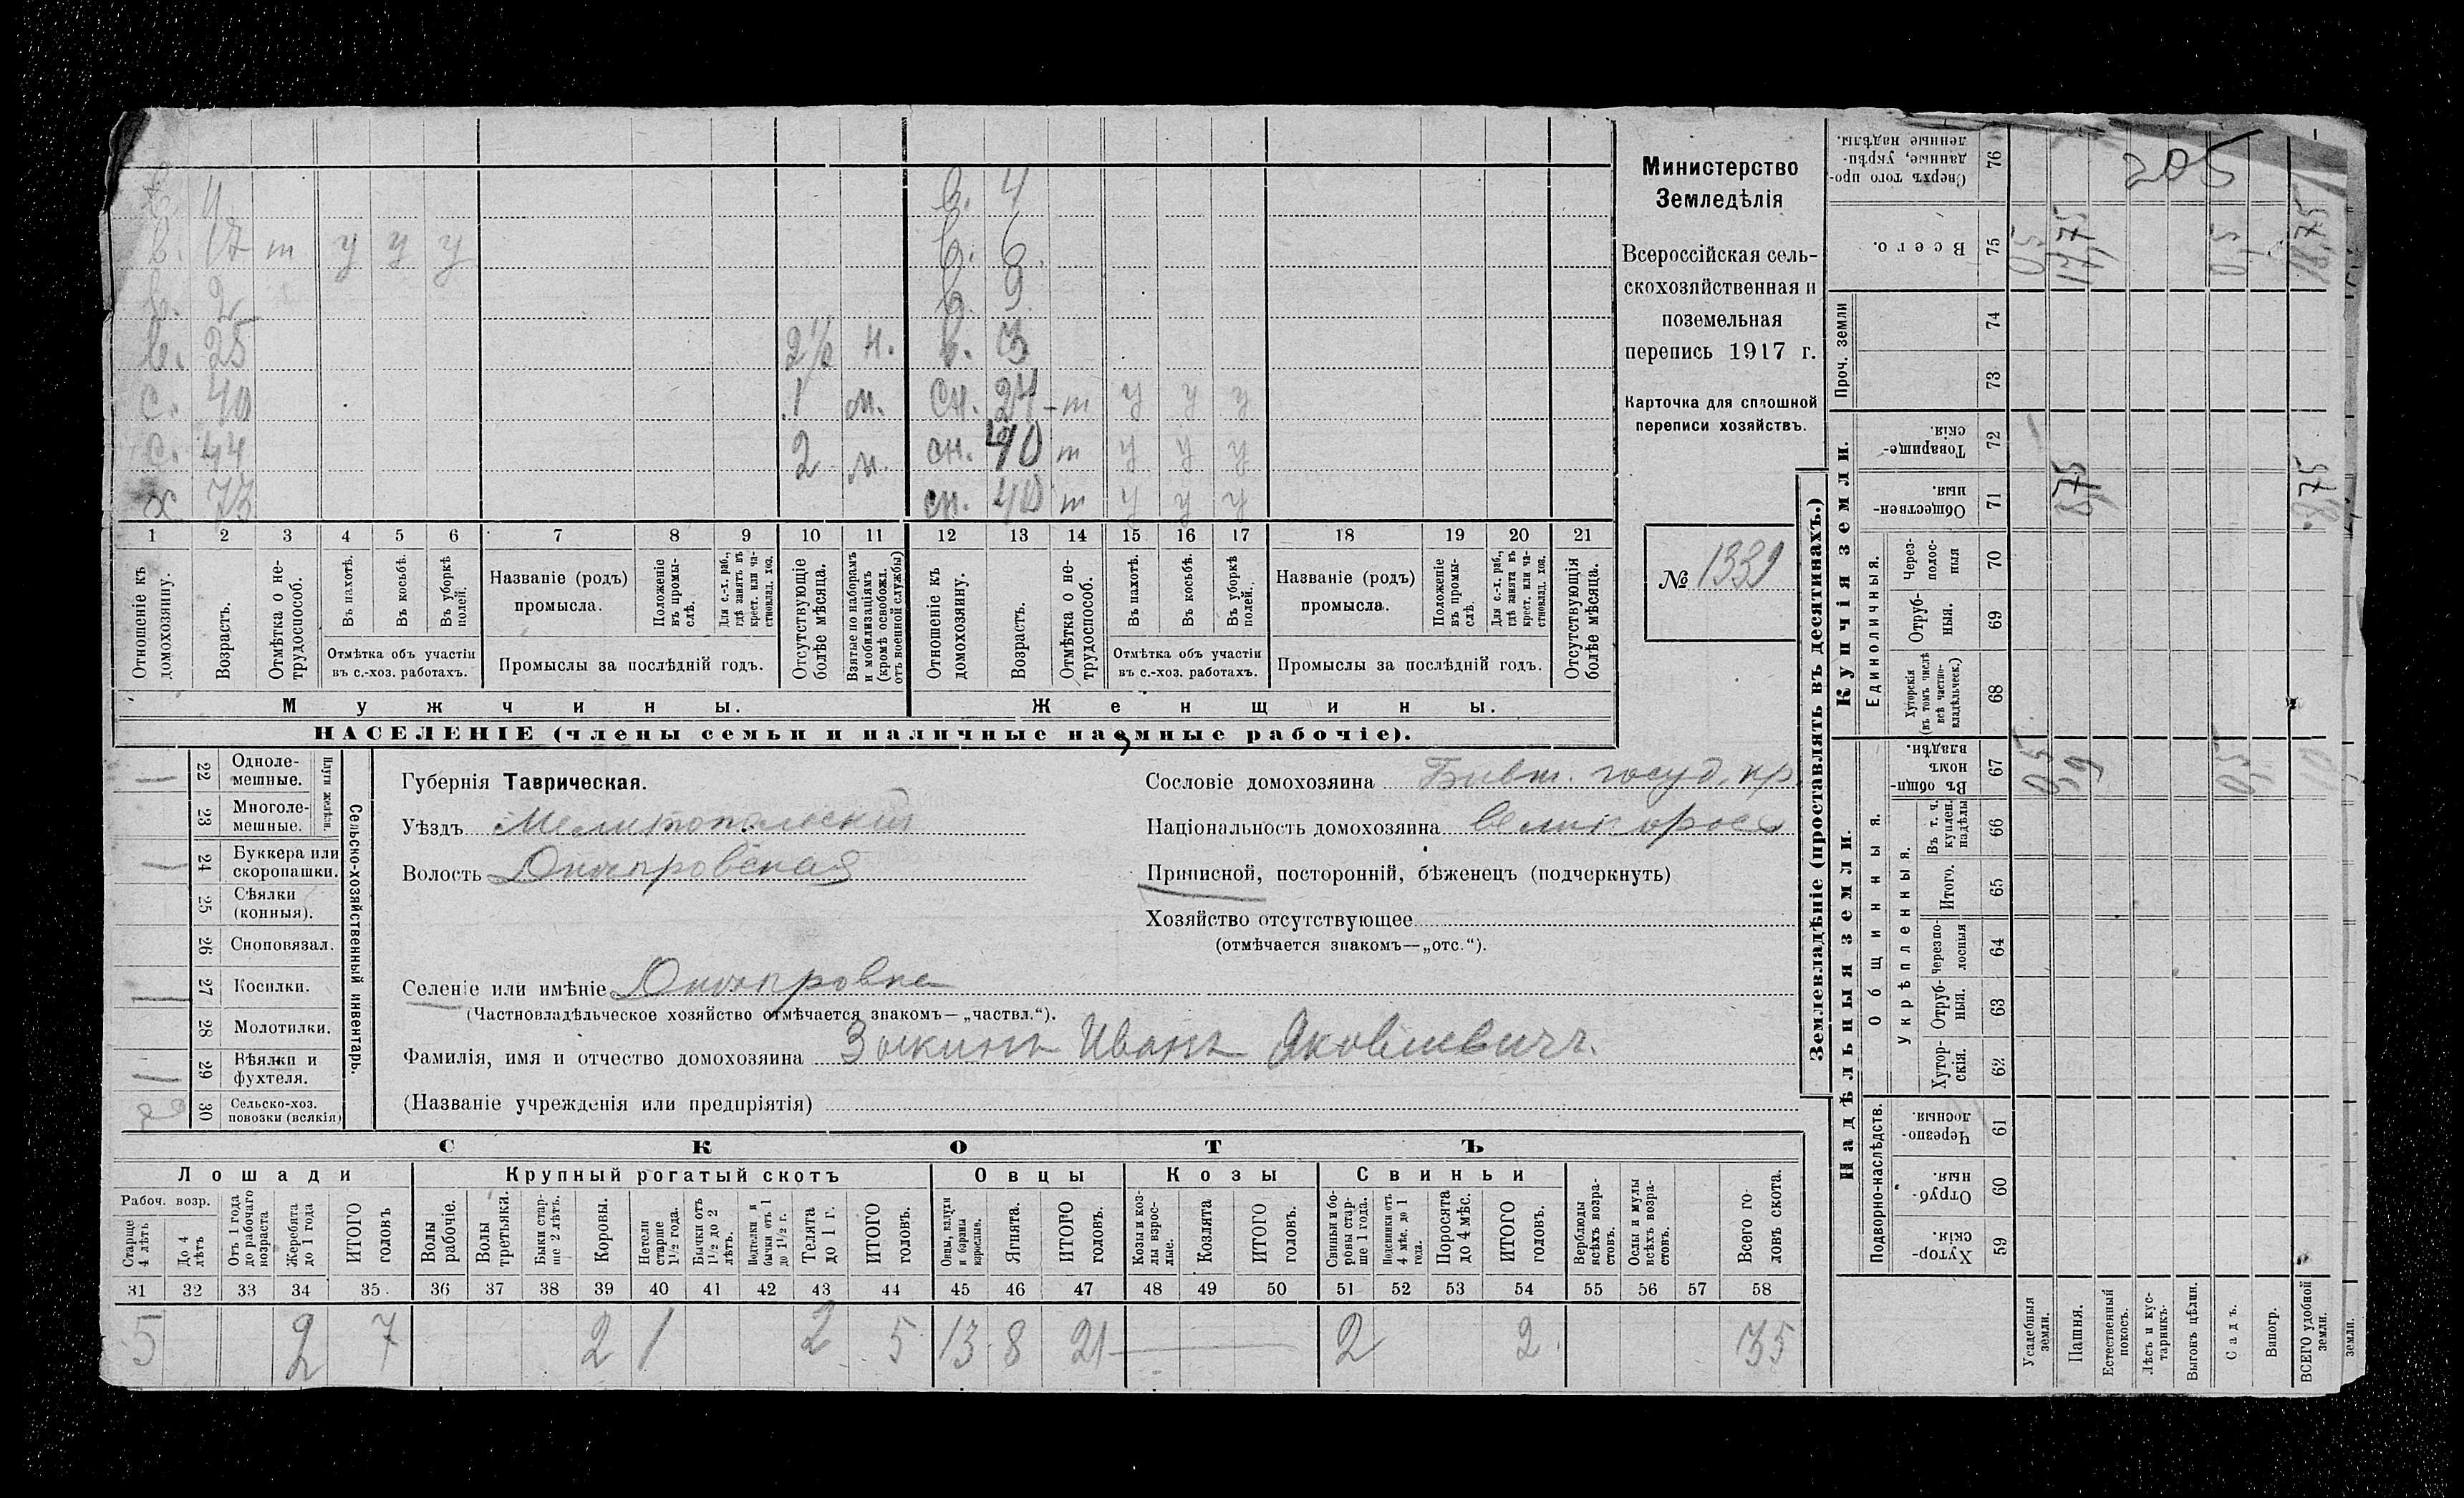 в. 4
в. 6.
в. 17 т у у у
в. 2
в. 9.
в. 25 2½ н. в. 3
с. 40 1 м. сн. 24 т у у у
с. 44 2 м. сн. 40 т у у у
х 73 сн. 40 т у у у
1 2 3 4 5 6 7 8 9 10 11 12 13 14 15 16 17 18 19 20 21
Отношеніе къ домохозяину.
Возрастъ.
Отмѣтка о не-трудоспособ.
Въ пахотѣ.
Въ косьбѣ.
Въ уборкѣ полей.
Отмѣтка объ участіи
въ с.-хоз. работахъ.
Названіе (родъ)
промысла.
Положеніе въ промы-слѣ.
Для с.-х. раб., гдѣ занятъ въ крест. или ча-стновлад. хоз.
Промыслы за послѣдній годъ.
Отсутствующіе болѣе мѣсяца.
Взятые по наборамъ и мобилизаціямъ (кромѣ освобожд. отъ военной службы)
Отношеніе къ домохозяину.
Возрастъ.
Отмѣтка о не-трудоспособ.
Въ пахотѣ.
Въ косьбѣ.
Въ уборкѣ полей.
Отмѣтка объ участіи
въ с.-хоз. работахъ.
Названіе (родъ)
промысла.
Положеніе въ промы-слѣ.
Для с.-х. раб., гдѣ занята въ крест. или ча-стновлад. хоз.
Промыслы за послѣдній годъ.
Отсутствующія болѣе мѣсяца.
Мужчины.
Женщины.
НАСЕЛЕНІЕ (члены семьи и наличные наемные рабочіе).
Министерство
Земледѣлія
Всероссійская сель-
скохозяйственная и
поземельная
перепись 1917 г.
Карточка для сплошной
переписи хозяйствъ.
№ 1339
22 Одноле-мешные.
23 Многоле-мешные.
Плуги желѣзн.
24 Буккера или скоропашки.
25 Сѣялки (конныя).
26 Сноповязал.
27 Косилки.
28 Молотилки.
29 Вѣялки и фухтеля.
30 Сельско-хоз. повозки (всякія)
Сельско-хозяйственный инвентарь.
Губернія Таврическая.
Уѣздъ Мелитопольскій
Волость Днѣпровская
Селеніе или имѣніе Днѣпровка
(Частновладѣльческое хозяйство отмѣчается знакомъ—„частвл.“).
Фамилія, имя и отчество домохозяина Зыкинъ Иванъ Яковлевичъ.
(Названіе учрежденія или предпріятія)
Сословіе домохозяина Бывш. госуд. кр.
Національность домохозяина великоросс
Приписной, посторонній, бѣженецъ (подчеркнуть)
Хозяйство отсутствующее
(отмѣчается знакомъ—„отс.“).
СКОТЪ
Лошади
Крупный рогатый скотъ
Овцы
Козы
Свиньи
Рабоч. возр.
Старше 4 лѣтъ
До 4 лѣтъ
Отъ 1 года до рабочаго возраста
Жеребята до 1 года
ИТОГО головъ
Волы рабочіе.
Волы третьяки.
Быки стар-ше 2 лѣтъ.
Коровы.
Нетели старше 1½ года.
Бычки отъ 1½ до 2 лѣтъ.
Подтелки и бычки отъ 1 до 1½ г.
Телята до 1 г.
ИТОГО головъ.
Овцы, валухи и бараны взрослые.
Ягнята.
ИТОГО головъ.
Козы и коз-лы взрос-лые.
Козлята
ИТОГО головъ.
Свиньи и бо-ровы стар-ше 1 года.
Подсвинки отъ 4 мѣс. до 1 года.
Поросята до 4 мѣс.
ИТОГО головъ.
Верблюды всѣхъ возра-стовъ.
Ослы и мулы всѣхъ возра-стовъ.
Всего го-ловъ скота.
31 32 33 34 35. 36 37 38 39 40 41 42 43 44 45 46 47 48 49 50 51 52 53 54 55 56 57 58
5 2 7 2 1 2 5 13 8 21 2 2. 35
Землевладѣніе (проставлять въ десятинахъ.)
Надѣльныя земли.
Купчія земли.
Проч. земли
Подворно-наслѣдств.
Общинныя.
Укрѣпленныя.
Единоличныя.
Сверхъ того про-данные, укрѣп-ленные надѣлы. 76
Всего. 75
74
73
Товарище-скія. 72
Обществен-ныя. 71
Через-полос-ныя 70
Отруб-ныя. 69
Хуторскія (въ томъ числѣ всѣ частно-владѣльческ.) 68
Въ общин-номъ владѣн. 67
Въ т. ч. куплен. надѣлы 66
Итого. 65
Черезпо-лосныя 64
Отруб-ныя. 63
Хутор-скія. 62
Черезпо-лосныя. 61
Отруб-ныя. 60
Хутор-скія. 59
Усадебныя земли.
Пашня.
Естественный покосъ.
Лѣсъ и кус-тарникъ.
Выгонъ цѣлин.
Садъ.
Виногр.
ВСЕГО удобной земли.
земли.
205
0,5 17,75 0,5 18,75
8,75 8,75
0,5 9 0,5 10